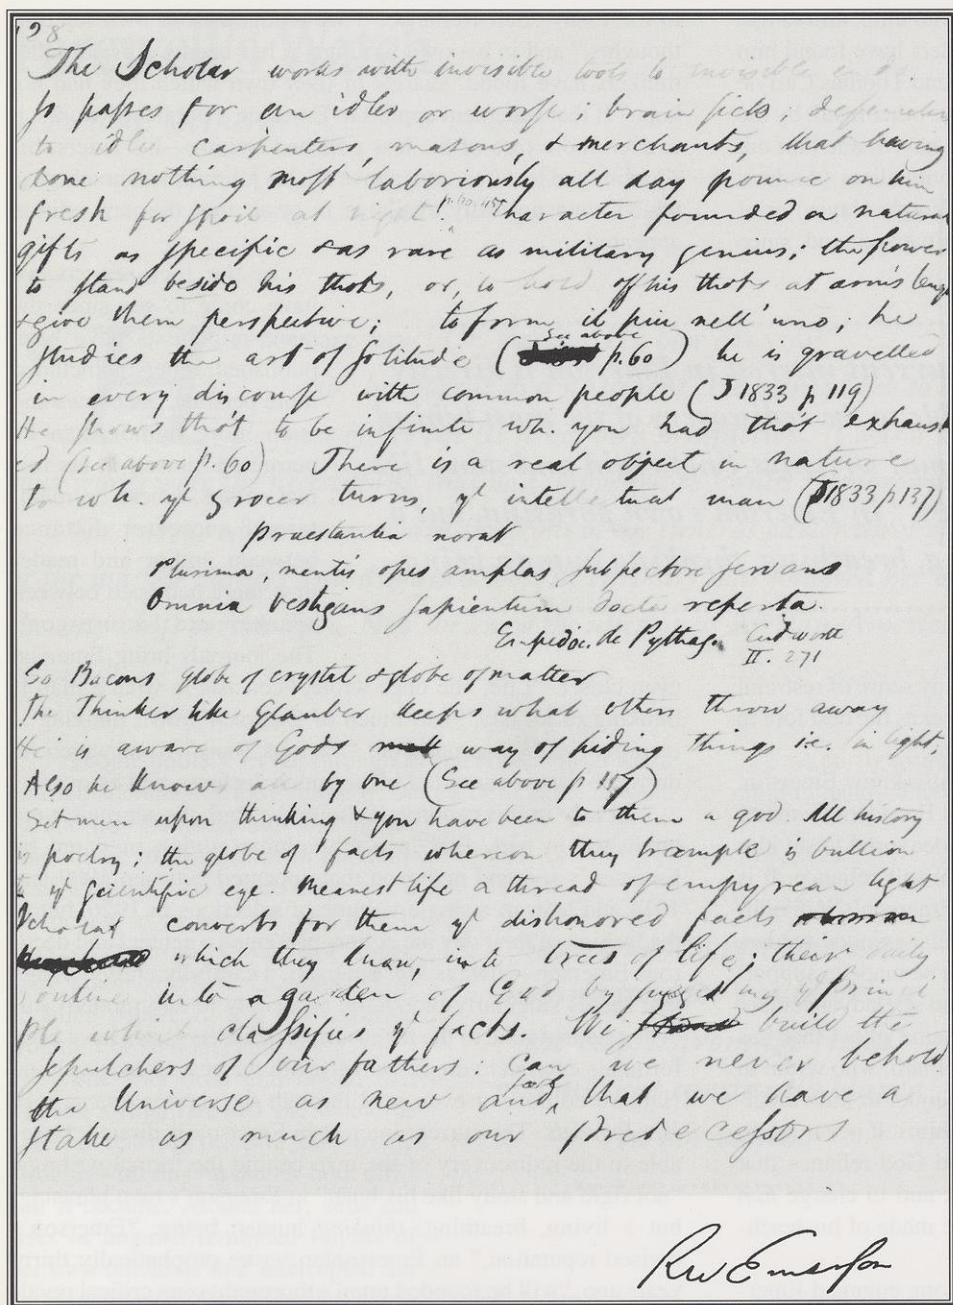 The Scholar works with invisible tools to invisible ends.
So passes for an idler or worse; brain sick; defenceless
to idle carpenters, masons, & merchants, that having
done nothing most laboriously all day pounce on him
fresh for spoil at night. Character founded on natural
gifts as specific & as rare as military genius; the power
to stand beside his thots, or, to hold off his thots at arm's length
& give them perspective; to form il piu nell' uno; he
studies the art of solitude (See above p. 60) he is gravelled
in every discourse with common people (J 1833 p 119)
He shows thot to be infinite wh. you had thot exhaust
ed (see above p. 60) There is a real object in nature
to wh. ye grocer turns, ye intellectual man (J1833 p 137)
praestantia norat
Plurima, mentis opes amplas sub pectore servans
Omnia vestigans sapientum docta reperta.
Empedoc. de Pythag. Cudworth
II. 271
So Bacons globe of crystal & globe of matter
The Thinker like Glauber keeps what others throw away
He is aware of Gods way of hiding things i.e. in light,
Also he knows all by one (See above p 157)
Set men upon thinking & you have been to them a god. All history
is poetry; the globe of facts whereon they trample is bullion
to ye scientific eye. Meanest life a thread of empyrean light
Scholar converts for them ye dishonored facts
which they know, into trees of life; their daily
routine into a garden of God by suggesting ye princi
ple which classifies ye facts. We build the
sepulchers of our fathers: can we never behold
the Universe as new and feel that we have a
stake as much as our predecessors
RW Emerson